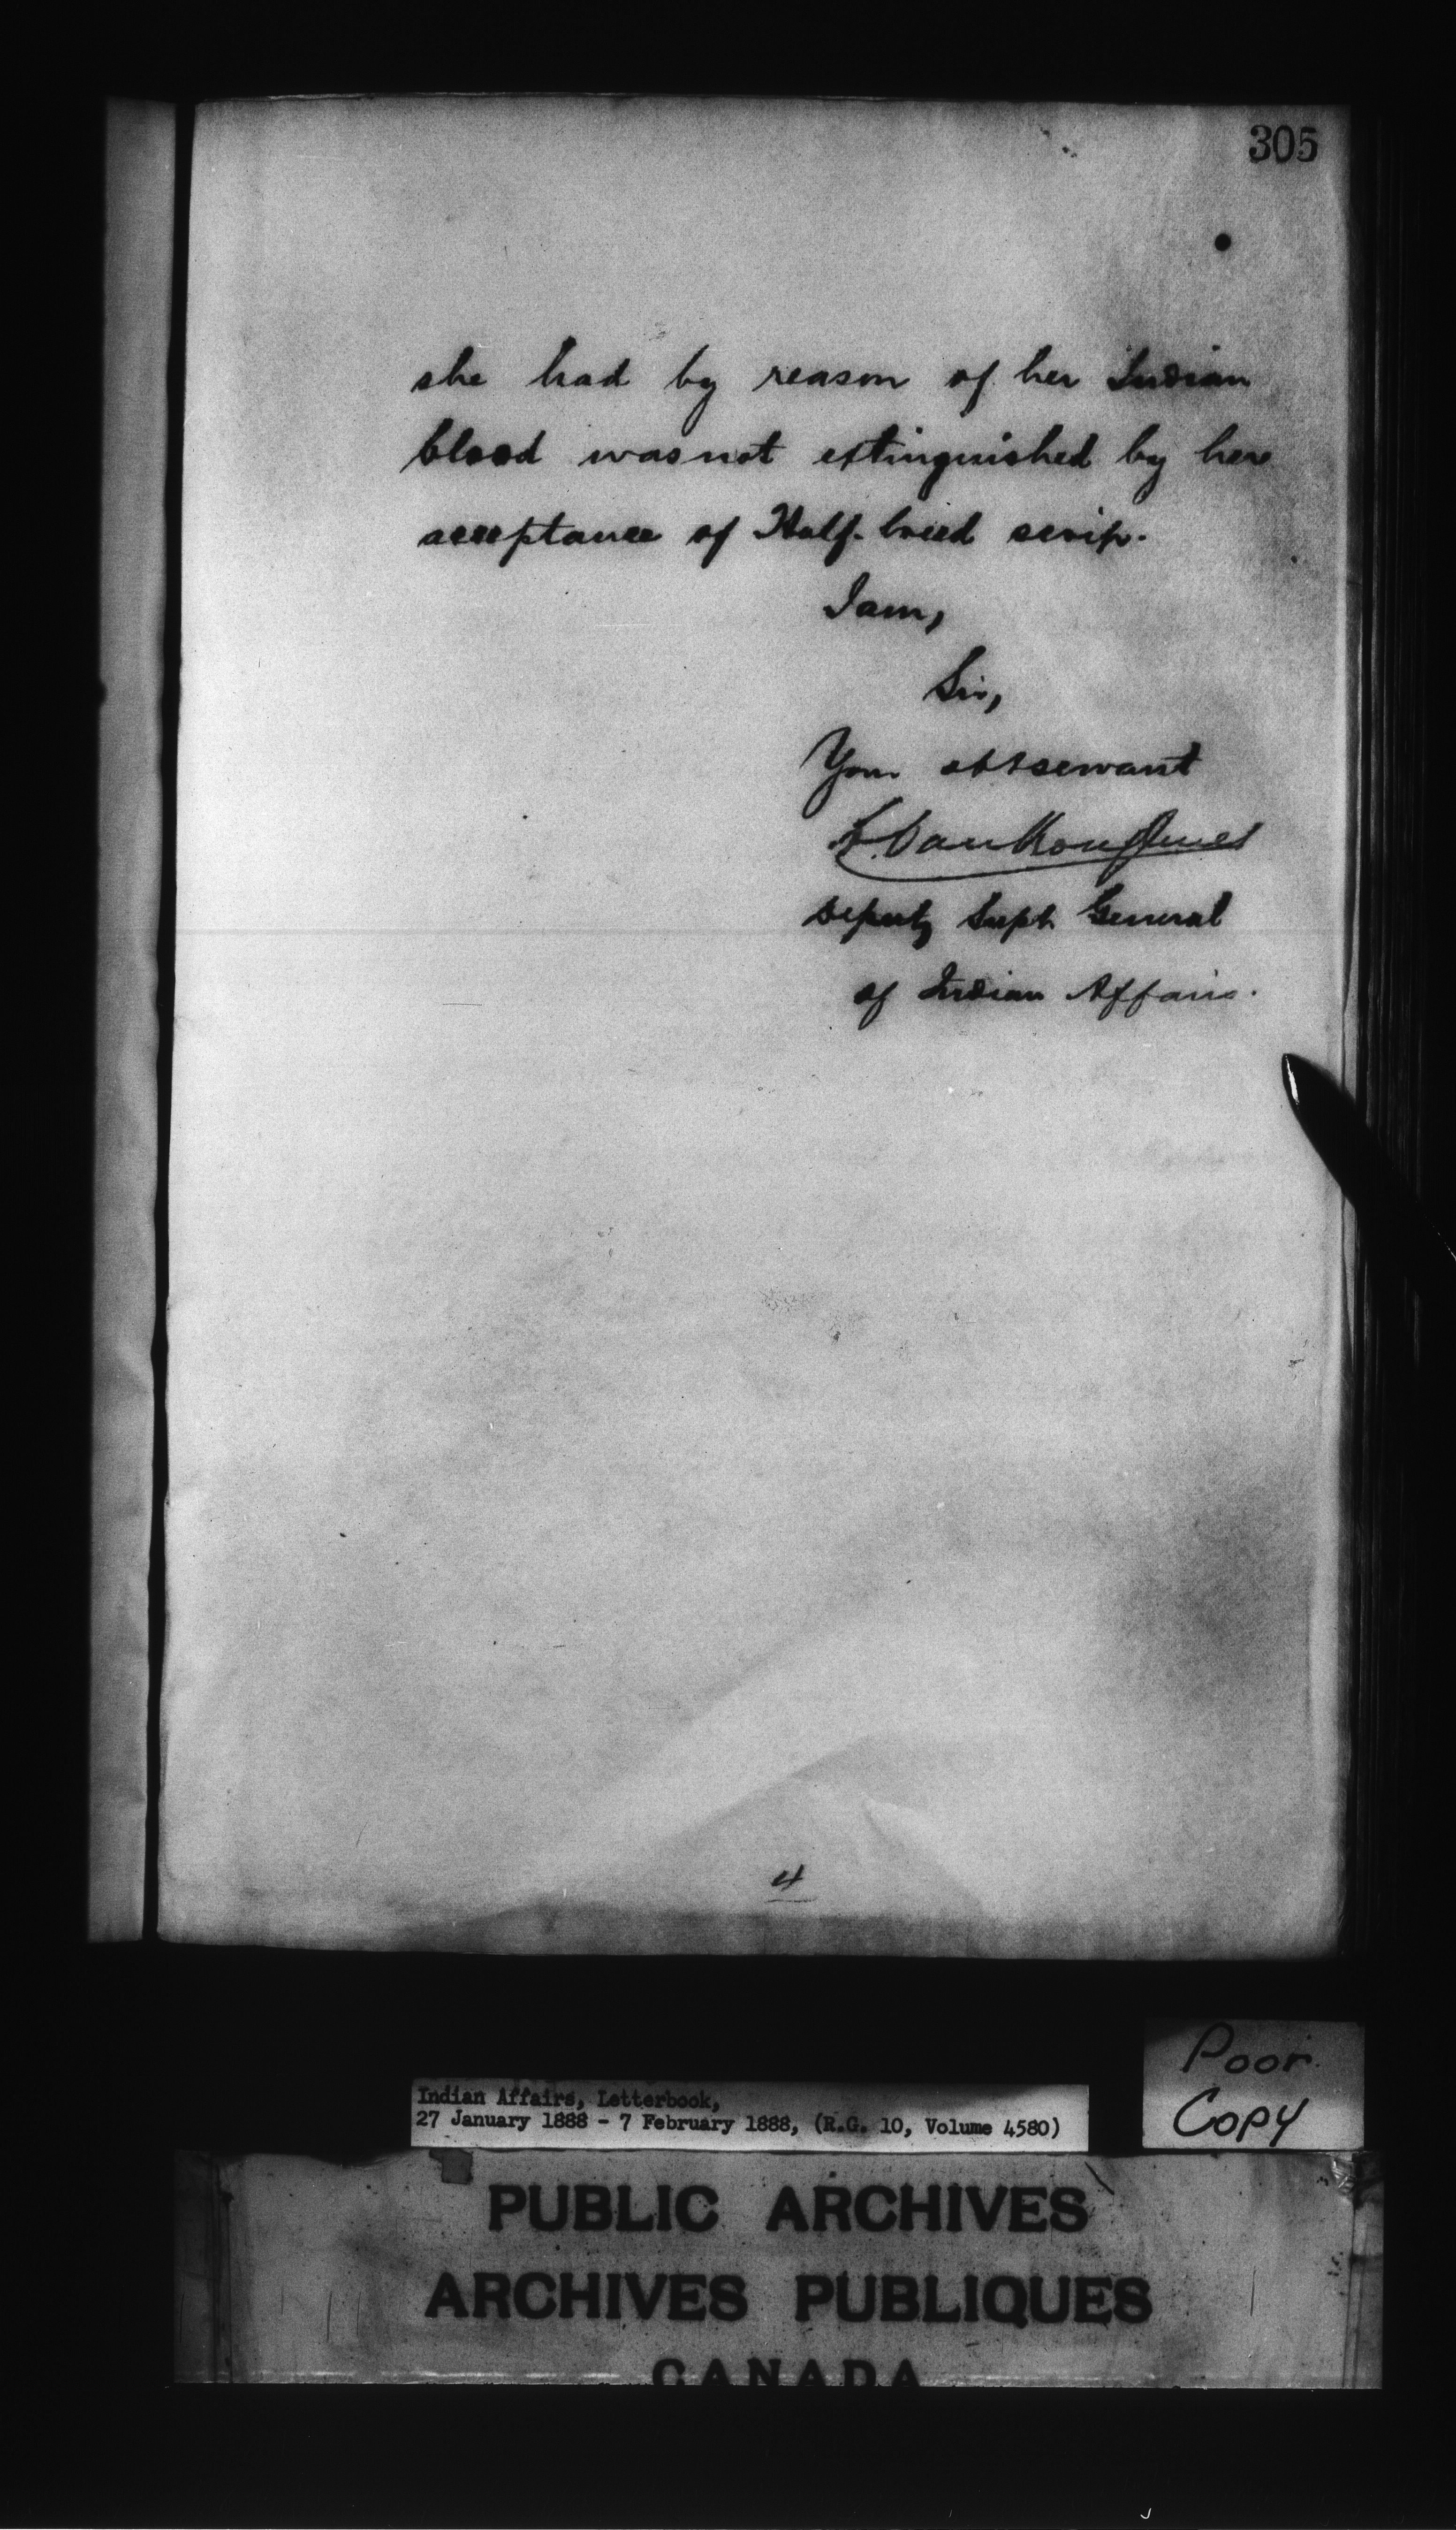 305
she had by reason of her Indian
blood was not extinguished by here
acceptance of Half-breed scrip.
I am,
Sir,
Your obt servant
L. VanKoughnet
Deputy Supt General
of Indian Affairs.
4
Poor
Copy
Indian Affairs, Letterbook,
27 January 1888 - 7 February 1888, (R.G. 10, Volume 4580)
PUBLIC ARCHIVES
ARCHIVES PUBLIQUES
CANADA